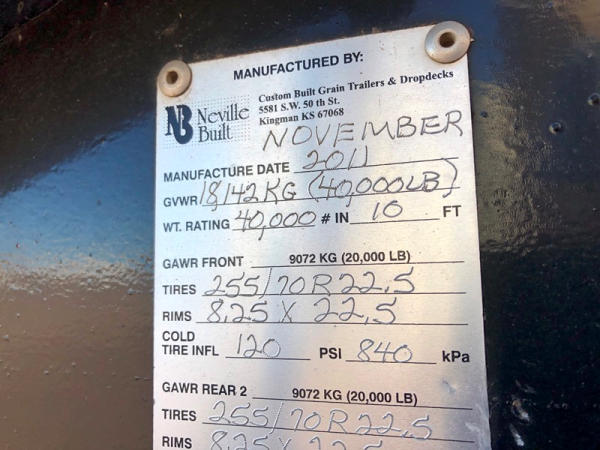 MANUFACTURED BY:
NB Neville Built
Custom Built Grain Trailers & Dropdecks
5581 S.W. 50 th St.
Kingman KS 67068
NOVEMBER
MANUFACTURE DATE 2011
GVWR 18,142KG (40,000LB)
WT. RATING 40,000 # IN 10 FT
GAWR FRONT 9072 KG (20,000 LB)
TIRES 255/70R22.5
RIMS 8.25 X 22.5
COLD
TIRE INFL 120 PSI 840 kPa
GAWR REAR 2 9072 KG (20,000 LB)
TIRES 255/70R22.5
RIMS 8.25 X 22.5